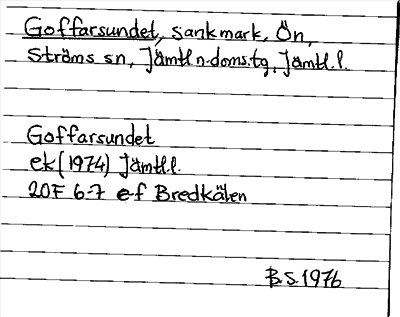 Goffarsundet, sankmark, Ön,
Ströms sn, Jämtl.n.doms.tg, Jämtl.l.
Goffarsundet
ek (1974) Jämtl.l.
20F 6-7 e-f Bredkälen
B.S. 1976